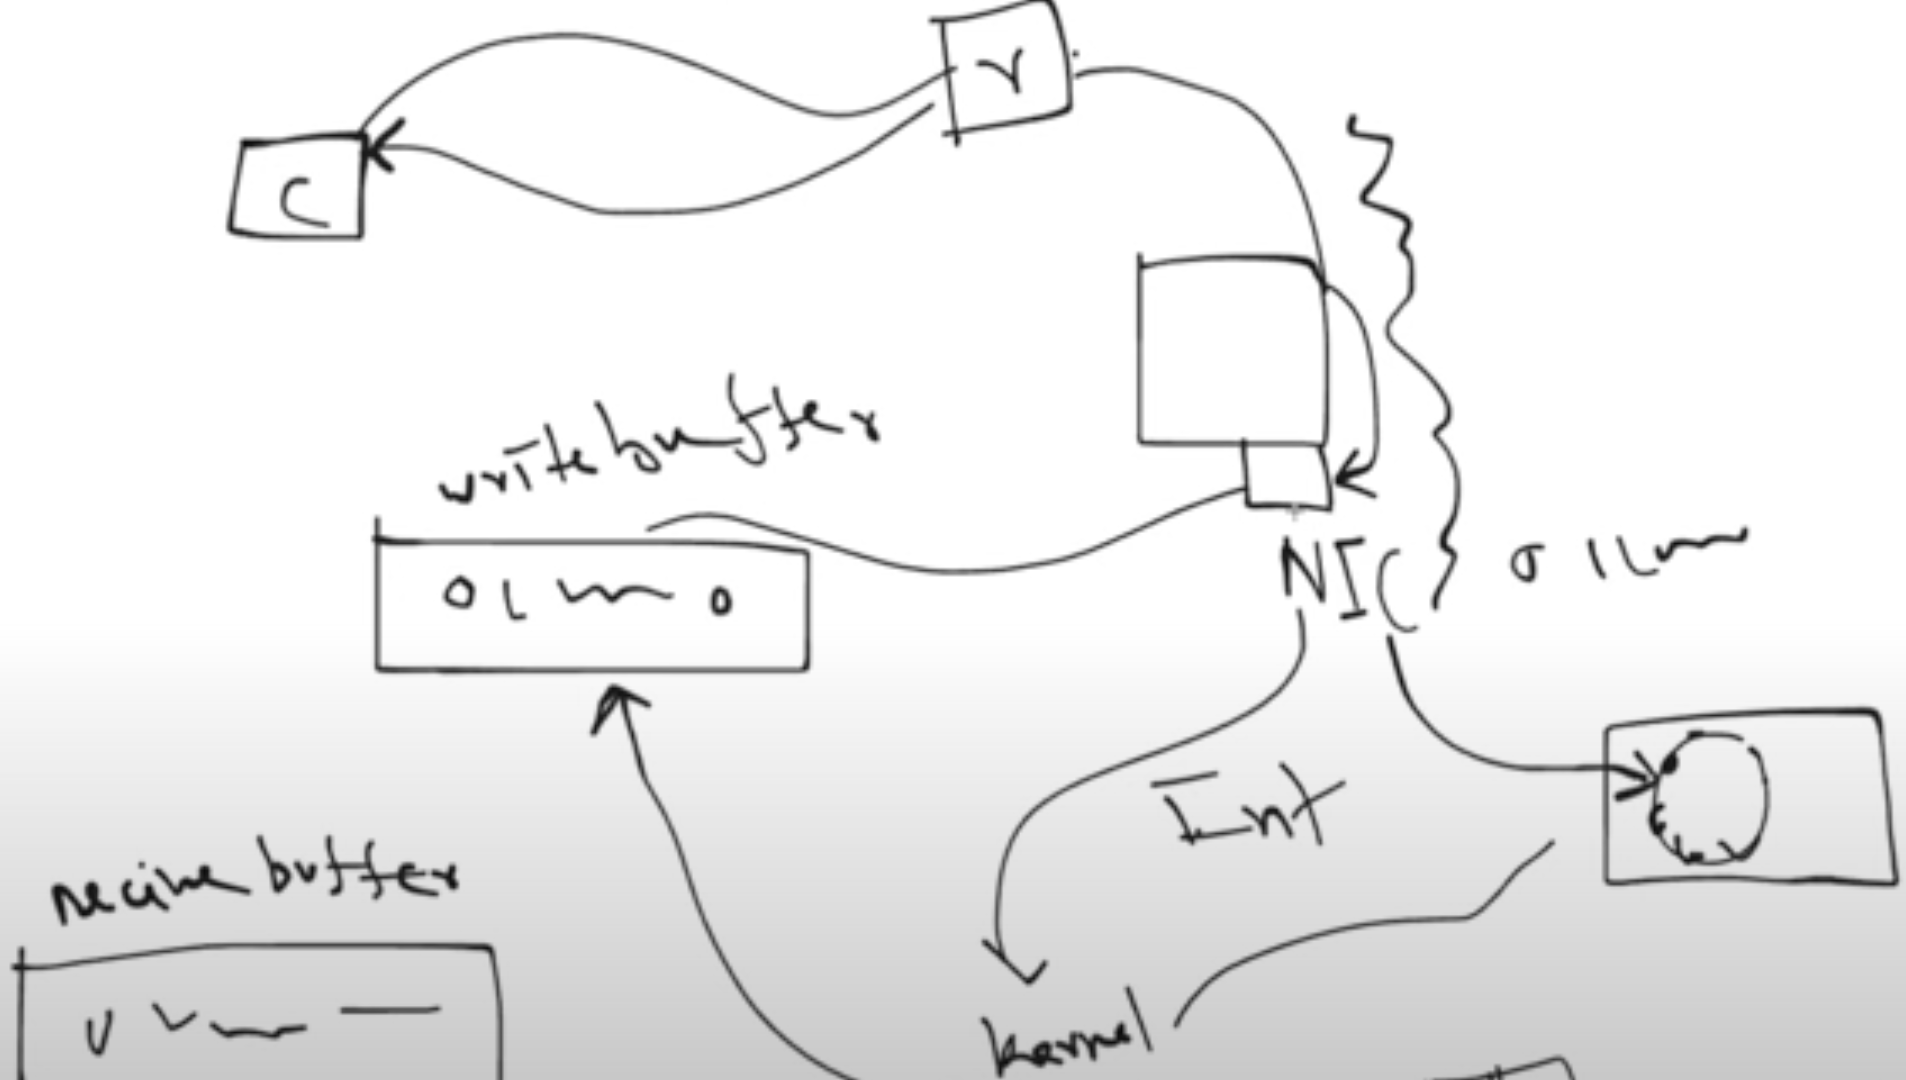 r
C
write buffer
NIC
Int
recive buffer
kernel